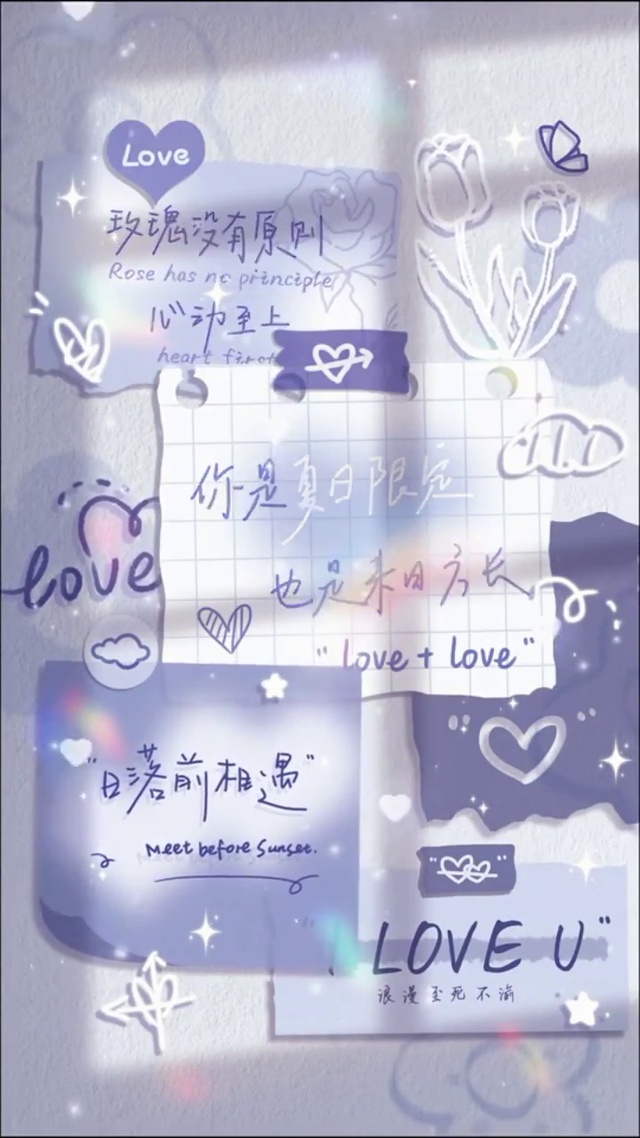 Love
玫瑰没有原则
Rose has no principle
心动至上
heart first
你是夏日限定
也是来日方长
love
"love + love"
"日落前相遇"
Meet before Sunset.
LOVE U"
浪漫至死不渝